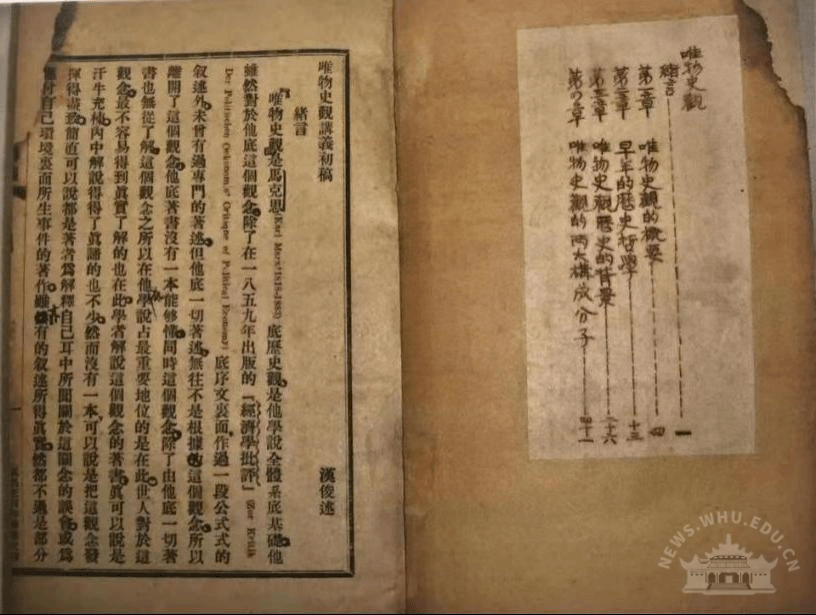 唯物史觀
緒言 一
第一章 唯物史觀的概要 四
第二章 早年的歷史哲學 十三
第三章 唯物史觀歷史的背景 二十六
第四章 唯物史觀的兩大構成分子 四十一
唯物史觀講義初稿 漢俊述
緒言
唯物史觀是馬克思(Karl Marx 1818-1883)底歷史觀是他學說全體系底基礎他
雖然對於他底這個觀念除了在一八五九年出版的「經濟學批評」(Zur Kritik
Der Politischen Oekonomie Critique of Political Economy)底序文裏面作過一段公式式的
敘述外未曾有過專門的著述但他底一切著述無往不是根據的這個觀念所以
離開了這個觀念他底著書沒有一本能够懂同時這個觀念除了由他底一切著
書也無從了解這個觀念之所以在他學說占最重要地位的是在此世人對於這
觀念最不容易得到眞實了解的也在此學者解說這個觀念的著書眞可以說是
汗牛充棟內中解說得得了眞諦的也不少然而沒有一本可以說是把這觀念發
揮得盡致簡直可以說都是著者爲解釋自己耳中所聞關於這關念的誤會或爲
應付自己環境裏面所生事件的著作雖然有的叙述所得眞實然都不過是部分
NEWS.WHU.EDU.CN